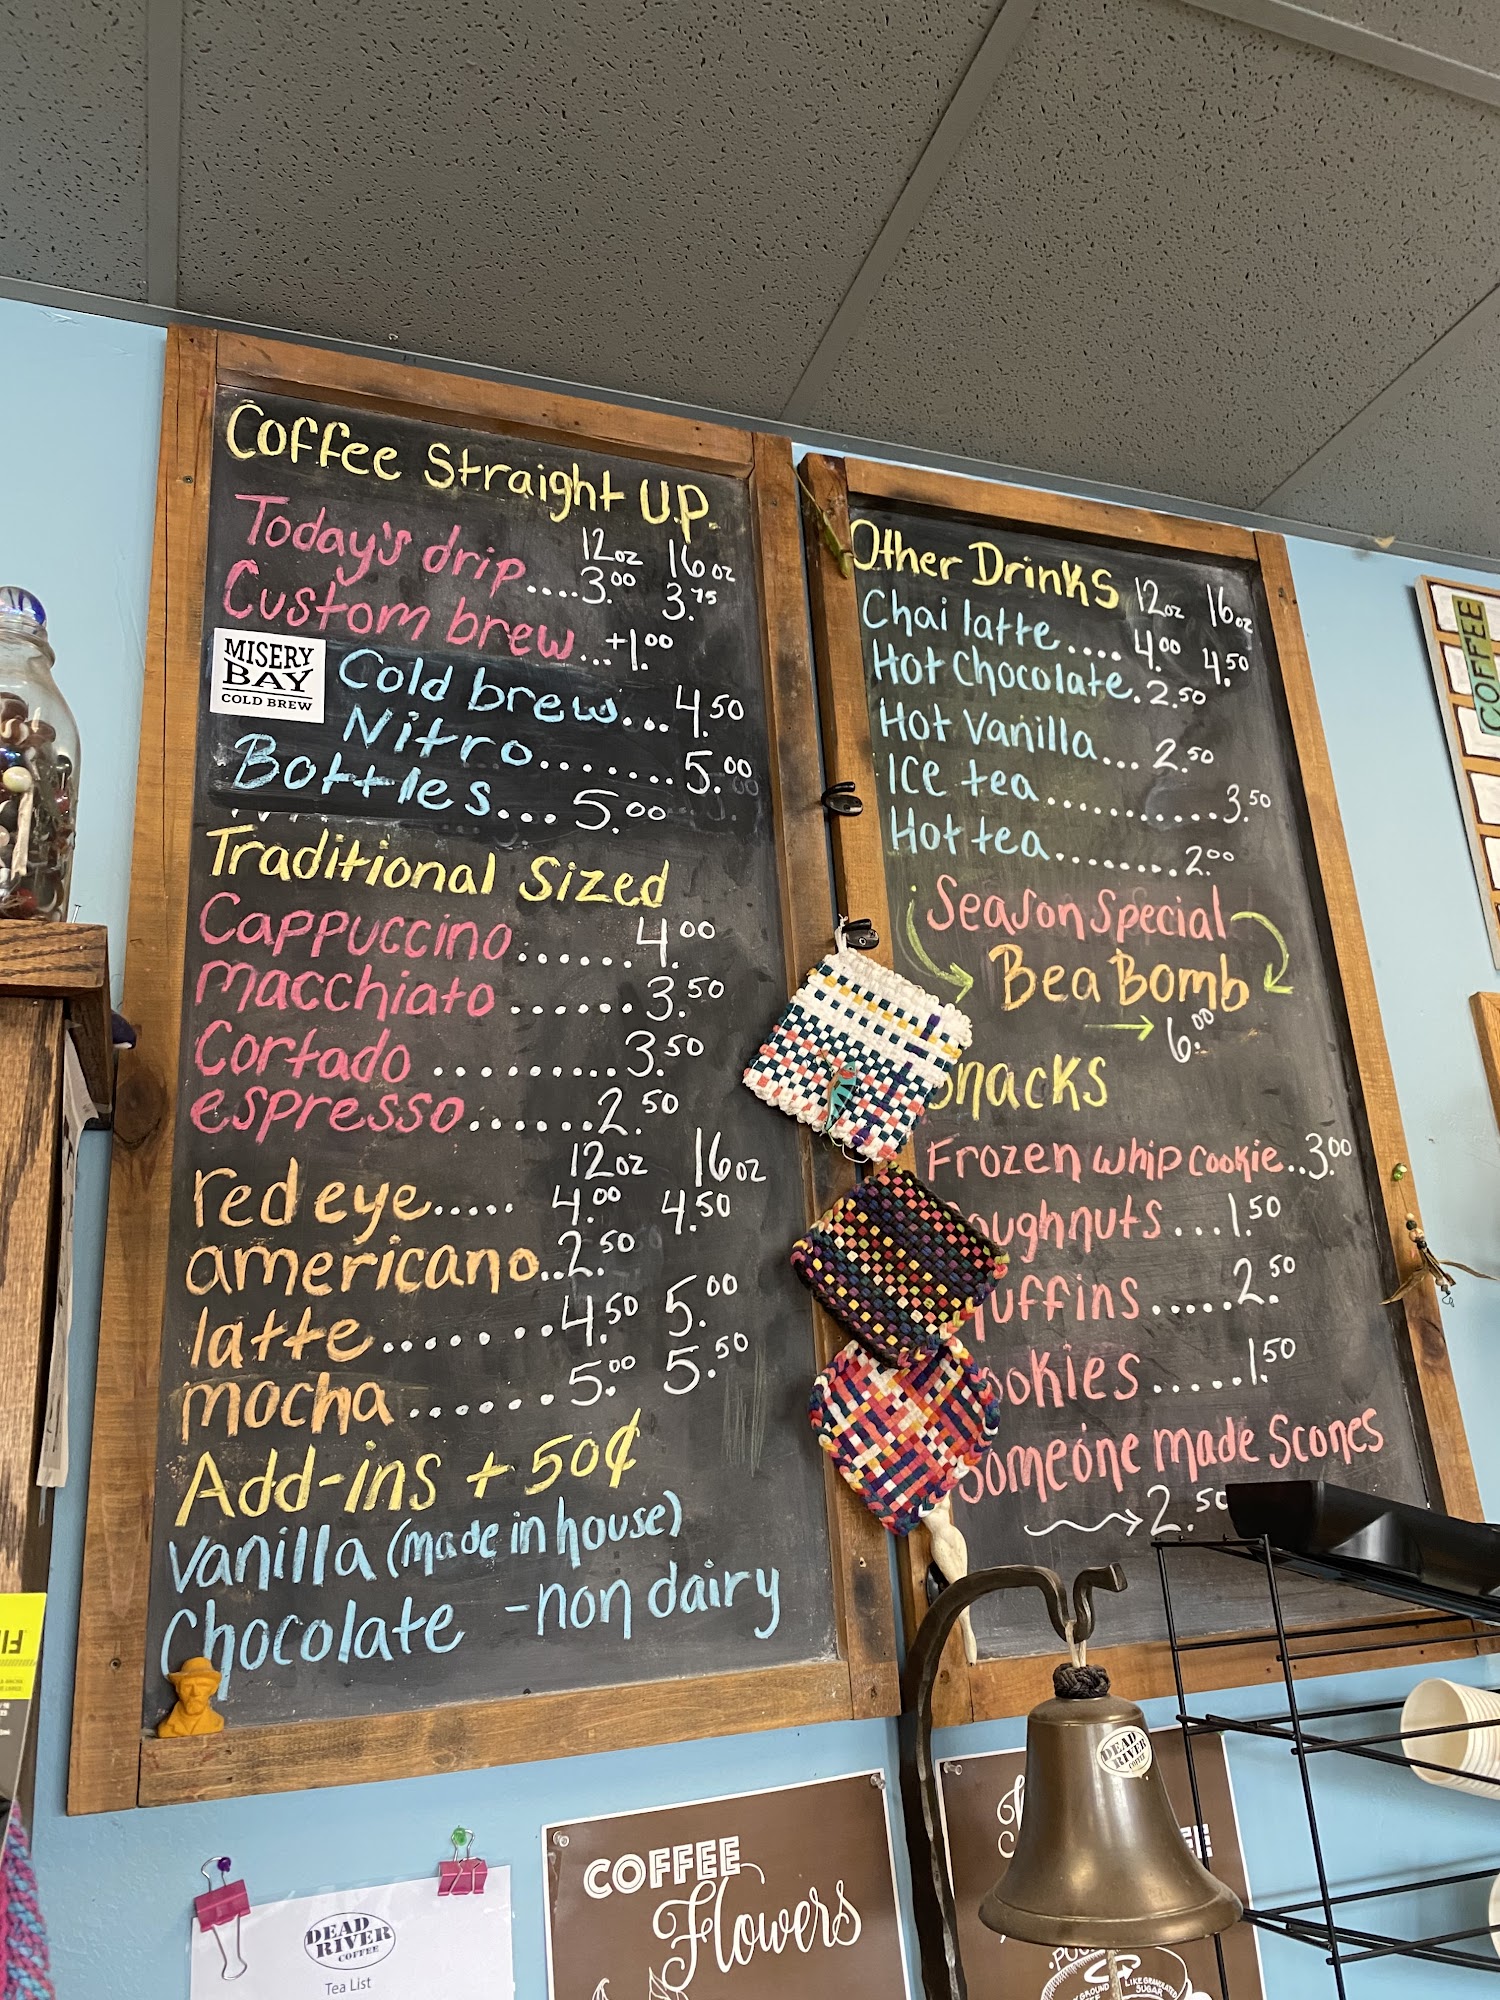 Coffee Straight U.P.
12oz 16oz
Today's drip....3.00 3.75
Custom brew...+1.00
MISERY
BAY
COLD BREW
Cold brew...4.50
Nitro.......5.00
Bottles...5.00
Traditional Sized
Cappuccino......4.00
macchiato......3.50
Cortado.........3.50
espresso......2.50
12oz 16oz
red eye..... 4.00 4.50
americano..2.50
latte.......4.50 5.00
mocha......5.00 5.50
Add-ins + 50¢
vanilla (made in house)
Chocolate -non dairy
Other Drinks 12oz 16oz
Chai latte.... 4.00 4.50
Hot Chocolate.2.50
Hot Vanilla...2.50
Ice tea..........3.50
Hot tea........2.00
Season Special
Bea Bomb
6.00
Snacks
Frozen whip cookie..3.00
oughnuts...1.50
uffins.....2.50
ookies.....1.50
Someone made Scones
2.50
COFFEE
DEAD
RIVER
COFFEE
DEAD
RIVER
COFFEE
Tea List
COFFEE
Flowers
LIKE GRANULATED
SUGAR